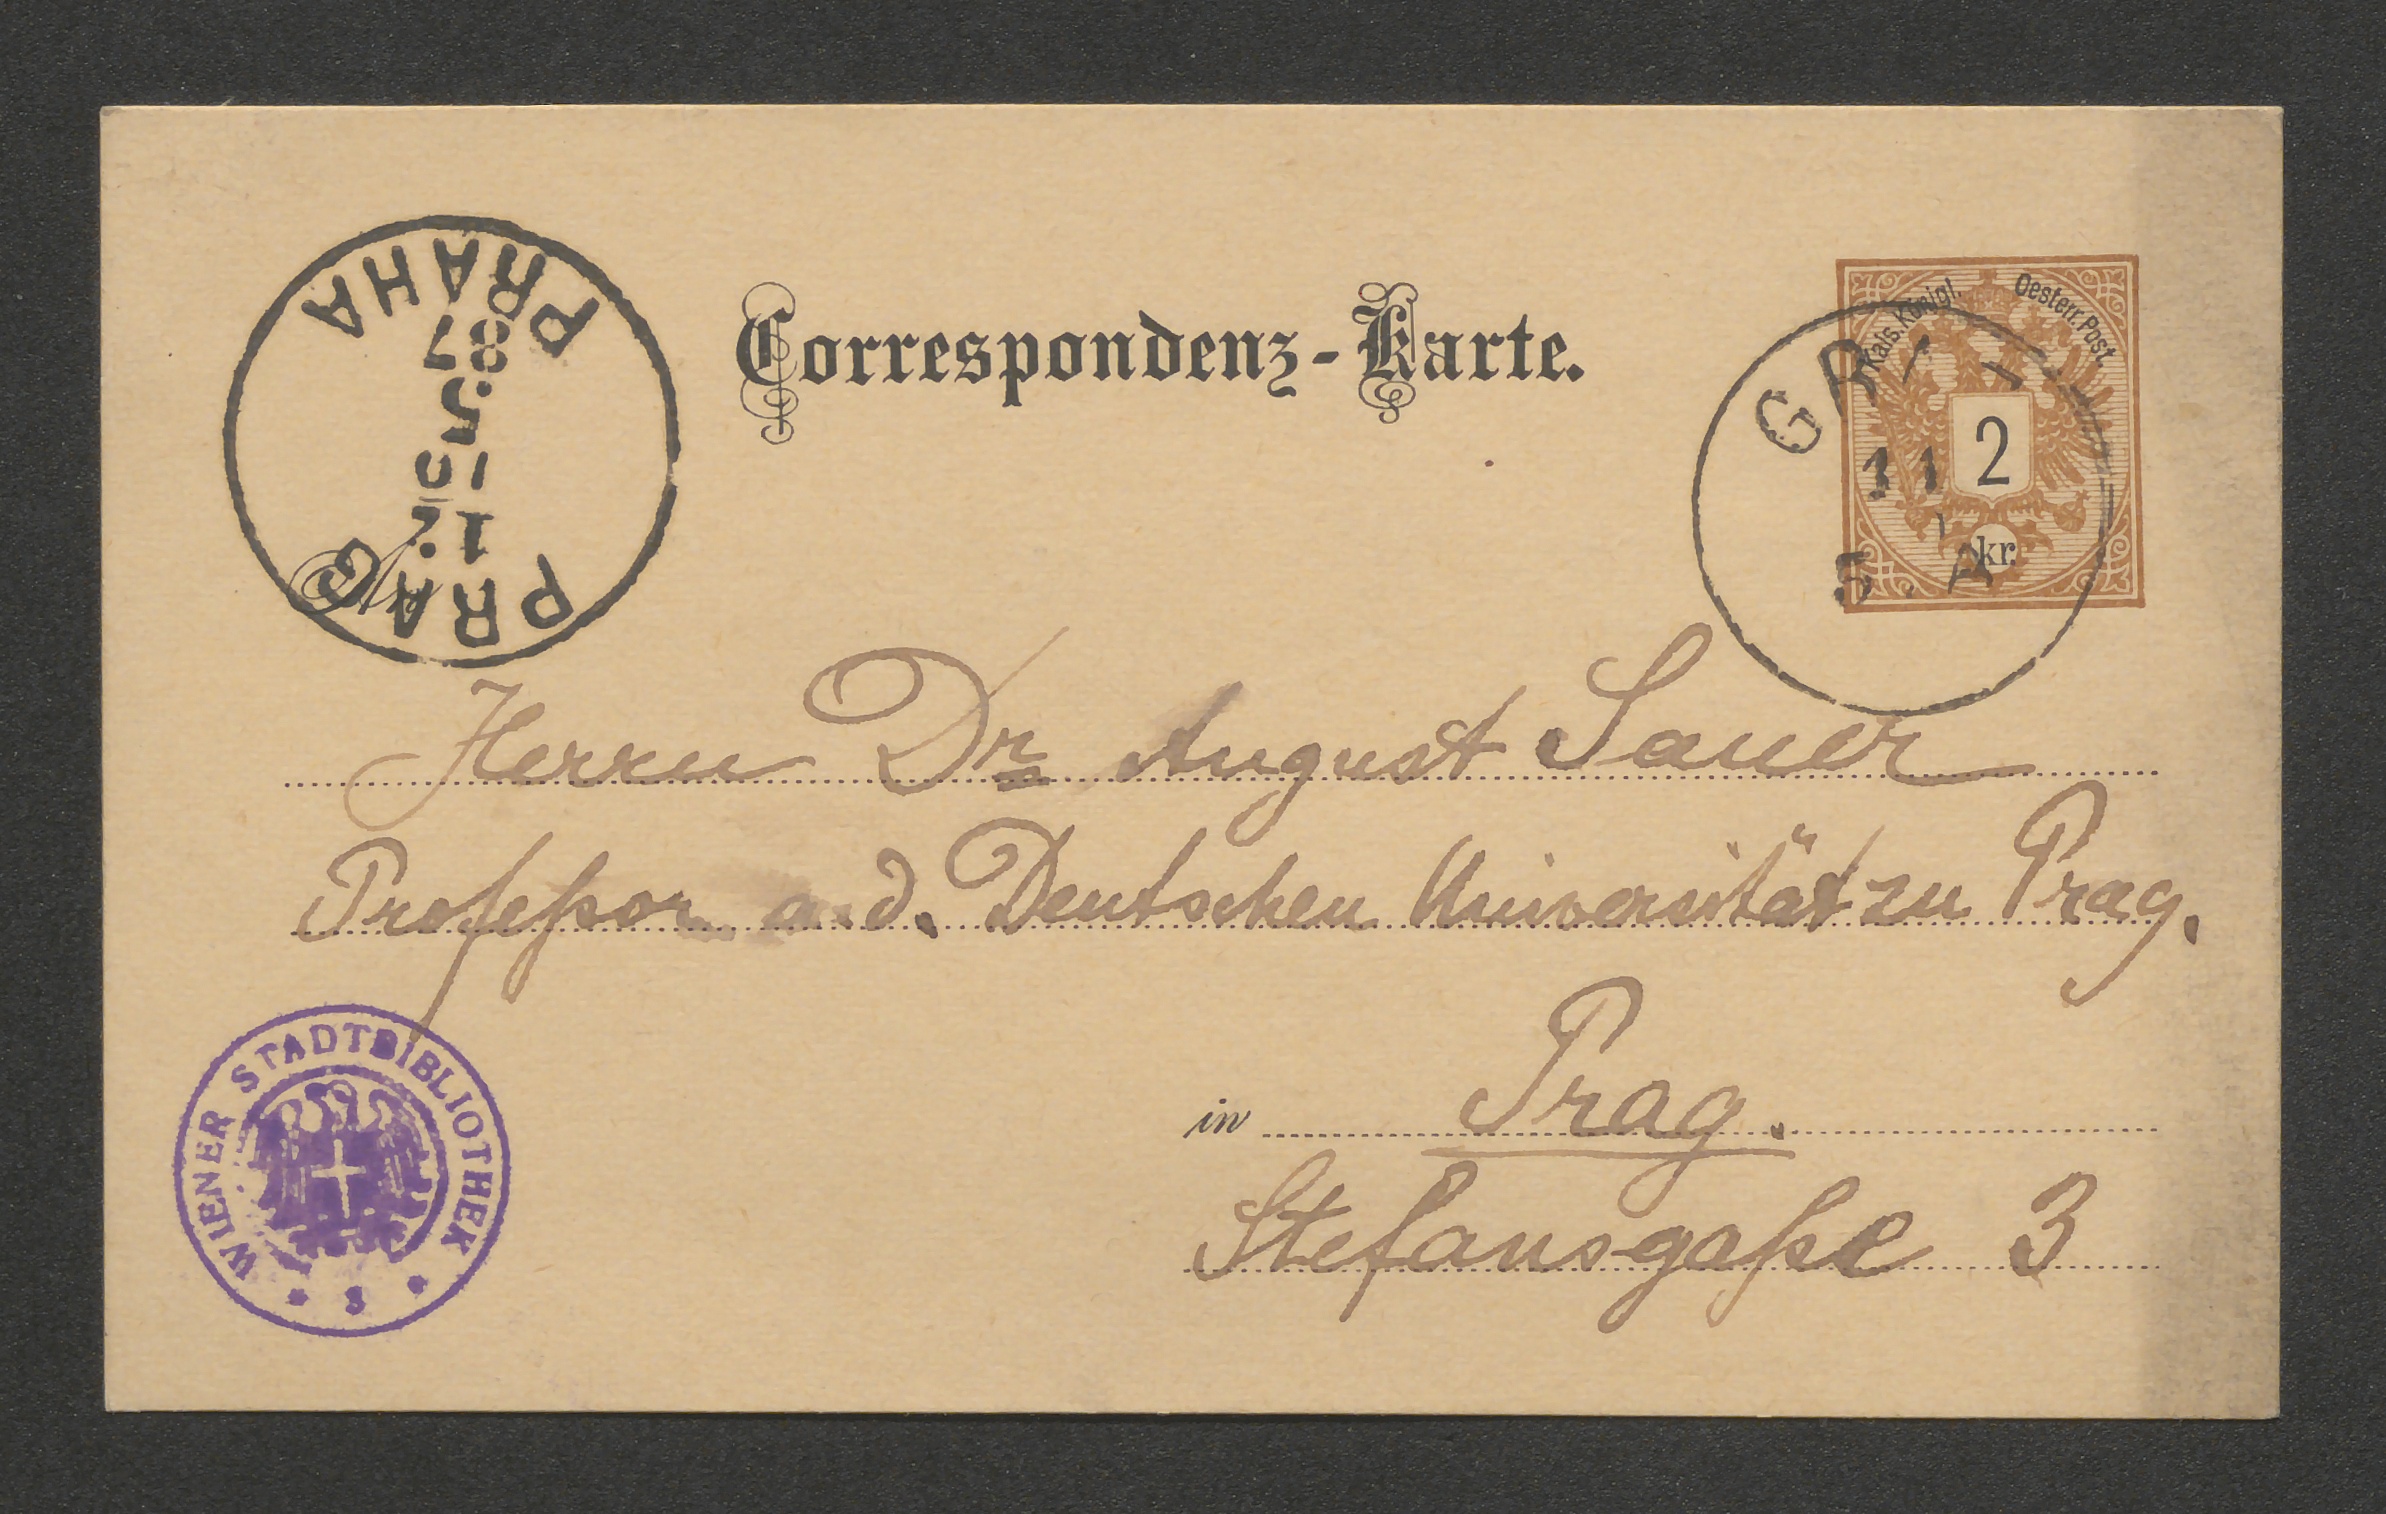 Correspondenz-Karte.
Kais. Königl. Oesterr. Post.
2
kr.
PRAG
PRAHA
87
11
5
Herrn Dr August Sauer
Professor a. d. Deutschen Universität zu Prag.
in Prag.
Stefansgasse 3
WIENER STADTBIBLIOTHEK